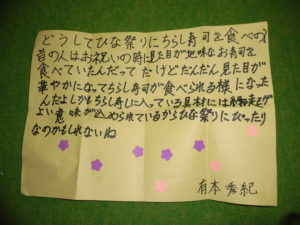 どうしてひな祭りにちらし寿司を食べの?
昔の人はお祝いの時に見た目が地味なお寿司を
食べていたんだって だけどだんだん見た目が
華やかになってちらし寿司が食べられる様になった
んだよしかもちらし寿しに入っている具材には縁起が
よい意味が込められているからひな祭りにぴったり
なのかもしれないね
有本秀紀